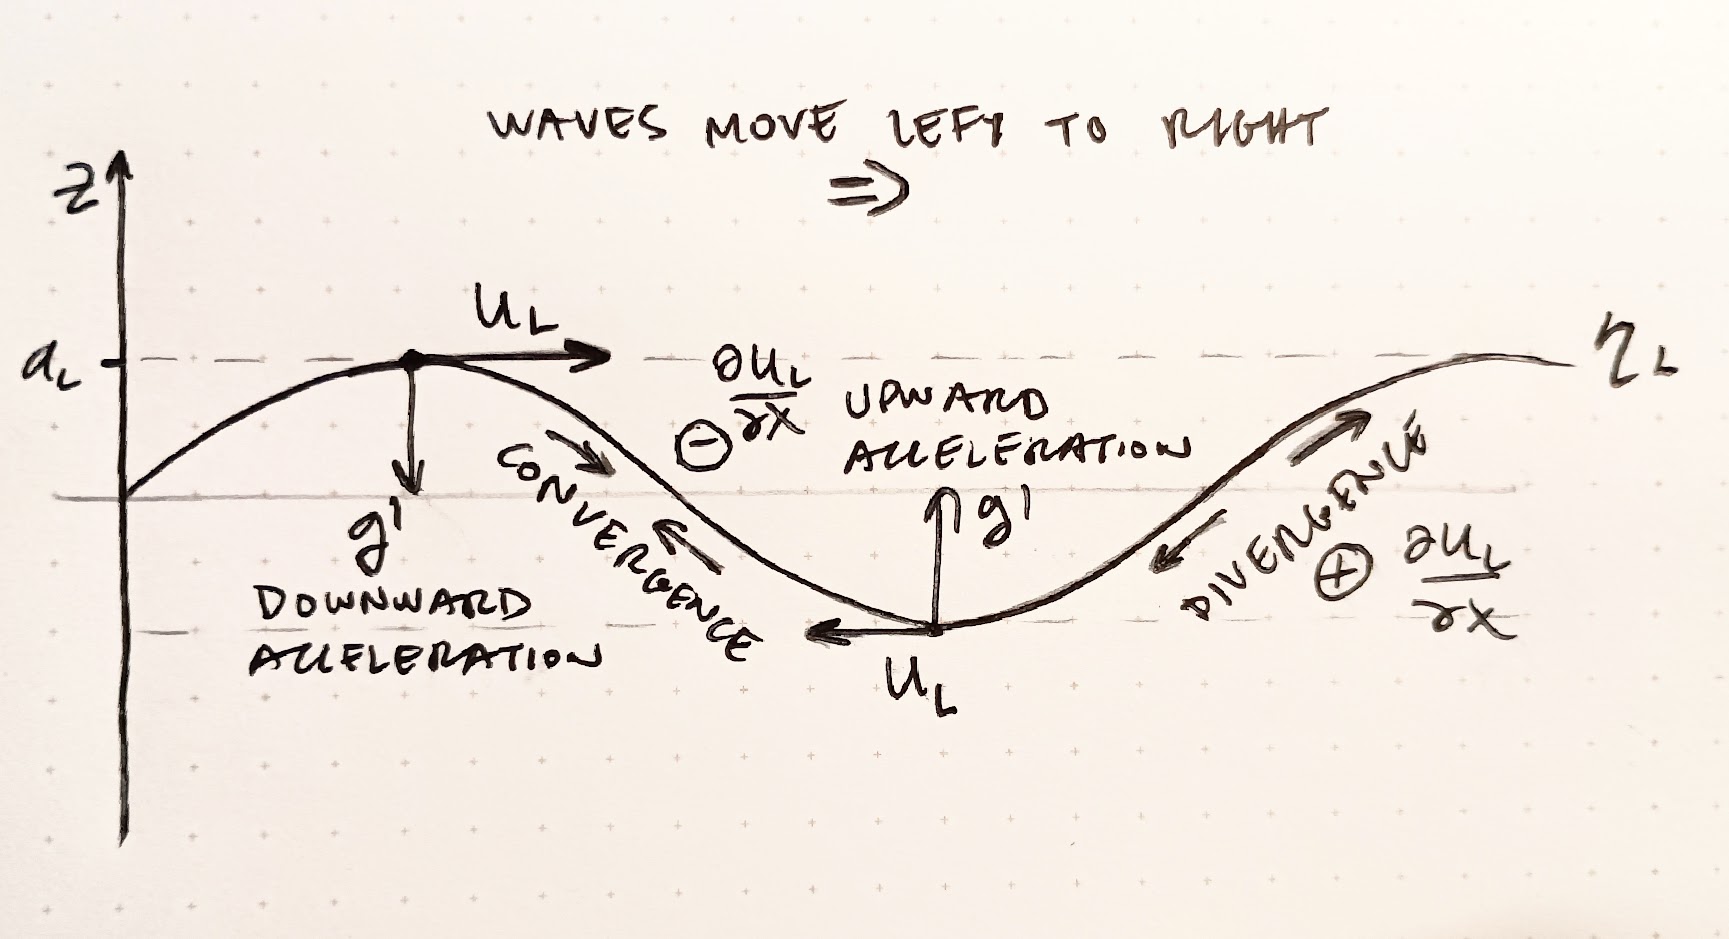 WAVES MOVE LEFT TO RIGHT
⇒
z
a_L
u_L
∂u_L/∂x
⊖
UPWARD
ACCELERATION
η_L
CONVERGENCE
g'
g'
DOWNWARD
ACCELERATION
u_L
DIVERGENCE
⊕ ∂u_L/∂x